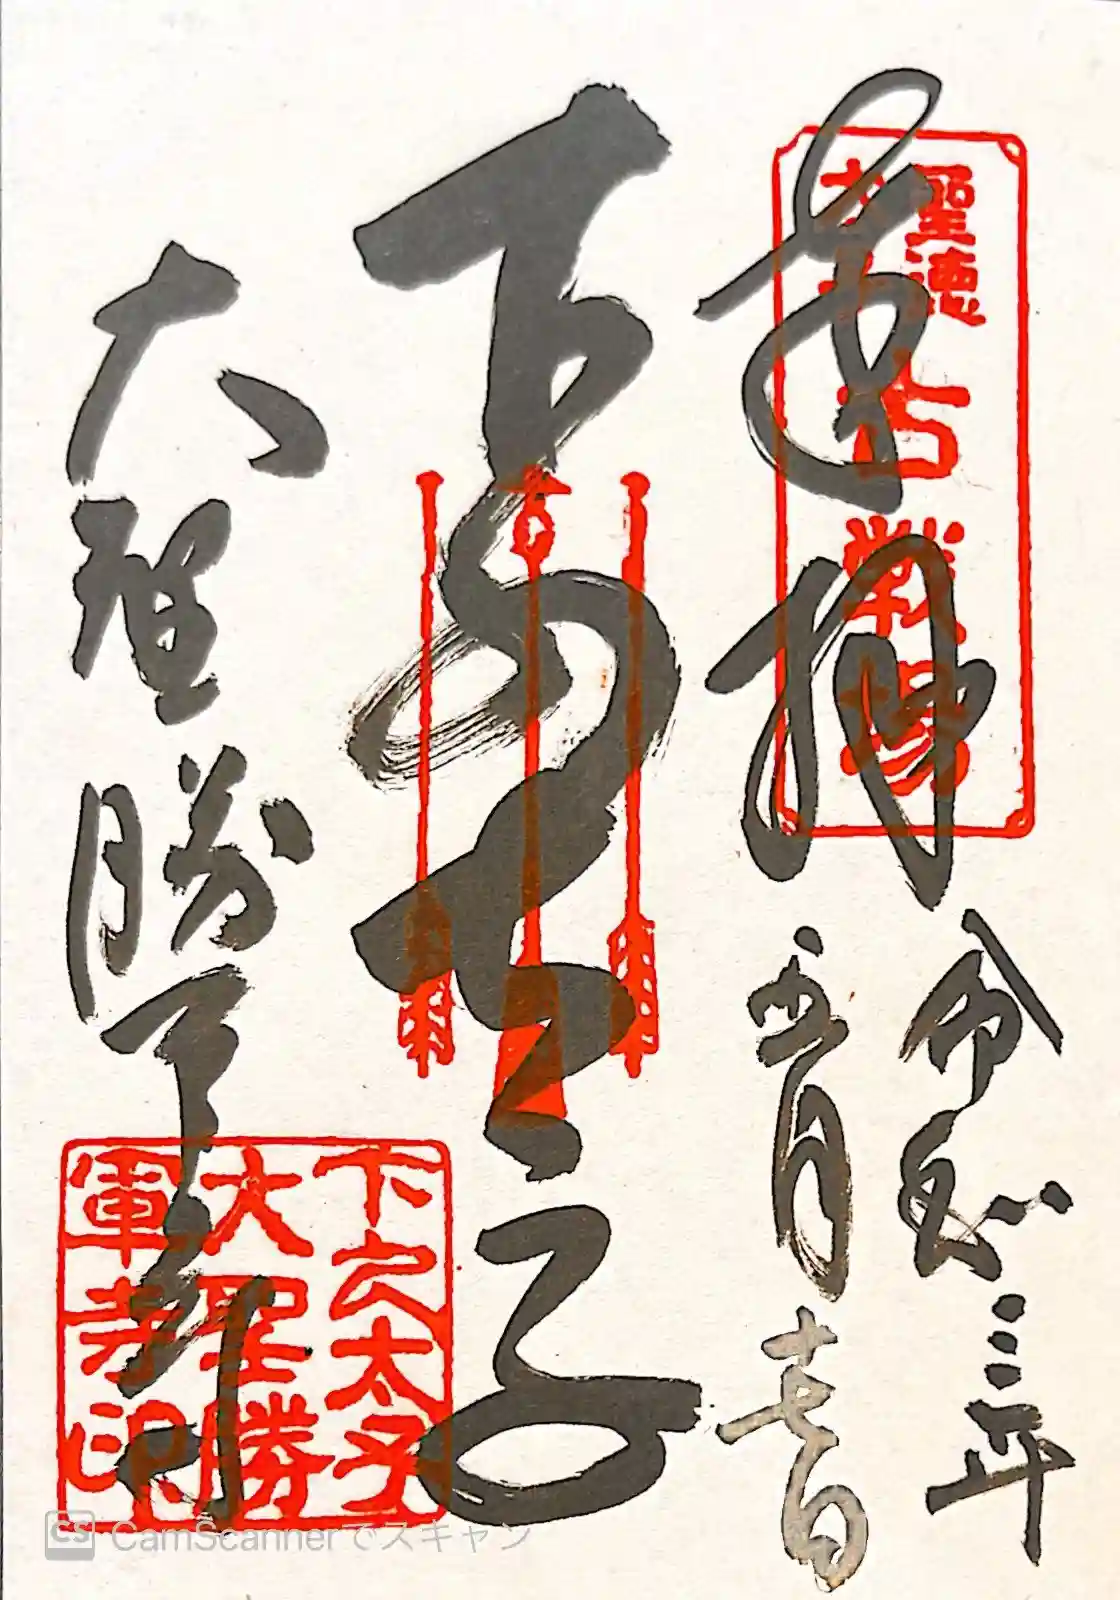 奉拝
聖徳
太子
古戦場
令和三年
下の太子
大聖勝軍寺
下之太子
大聖勝
軍寺印
CS CamScannerでスキャン